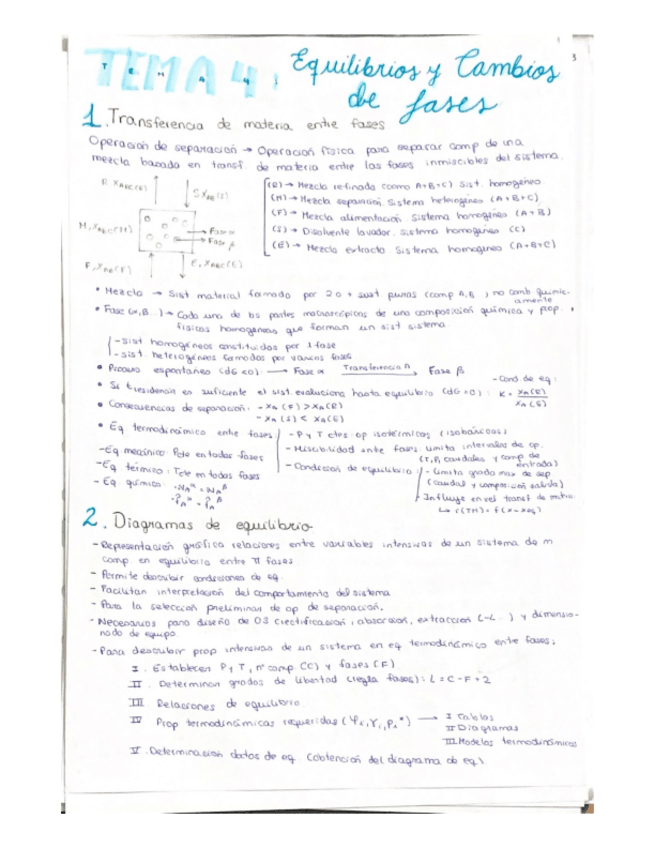 3
TEMA 4: Equilibrios y Cambios
de fases
1. Transferencia de materia entre fases
Operación de separación → Operación física para separar comp de una
mezcla basada en transf. de materia entre las fases inmiscibles del sistema.
R XABC(R)
S XAB(S)
M, XABC(M)
→ Fase α
→ Fase β
F, XAB(F)
E, XABC(E)
(R) → Mezcla refinada (como A+B+C) Sist. homogéneo
(M) → Mezcla separación. Sistema heterogéneo (A+B+C)
(F) → Mezcla alimentación Sistema homogéneo (A+B)
(S) → Disolvente lavador. Sistema homogéneo (C)
(E) → Mezcla extracto Sistema homogéneo (A+B+C)
• Mezcla → Sist material formado por 2 o + sust puras (comp A,B) no comb químic-
amente
• Fase (α,β..) → Cada una de las partes macroscópicas de una composición química y prop.
físicas homogéneas que forman un sist sistema
- Sist homogéneos constituidos por 1 fase
- sist heterogéneos formados por varias fases
• Proceso espontáneo (dG<0): → Fase α Transferencia A → Fase β
- Cond de eq:
• Si t residencia es suficiente el sist. evoluciona hasta equilibrio (dG=0): K = XA(R)
XA(E)
• Consecuencias de separación: - XA(F) > XA(R)
- XA(S) < XA(E)
• Eq termodinámico entre fases
- Eq mecánico: P cte en todas fases
- Eq térmico: T cte en todas fases
- Eq químico:
- P y T ctes op isotérmicas (isobáricas)
- Miscibilidad entre fases limita intervalos de op.
(T, P, caudales y comp de
entrada)
- Condición de equilibrio: - limita grado max de sep
(caudal y composición salida)
- Influye en vel transf de mtria
↳ r(TM) = f(x-xeq)
2. Diagramas de equilibrio
- Representación gráfica relaciones entre variables intensivas de un sistema de m
comp. en equilibrio entre π fases
- Permite describir condiciones de eq.
- Facilitan interpretación del comportamiento del sistema
- Para la selección preliminar de op de separación.
- Necesarios para diseño de OS (rectificación, absorción, extracción (L-L..) y dimensio-
nado de equipo
- Para describir prop intensivas de un sistema en eq termodinámico entre fases:
I. Establecer P y T, nº comp. (C) y fases (F)
II. Determinar grados de libertad (regla fases): L = C-F+2
III. Relaciones de equilibrio
IV Prop termodinámicas requeridas (φi, γi, pi*) → I Tablas
II Diagramas
III. Modelos termodinámicos
V. Determinación datos de eq. (obtención del diagrama de eq.)